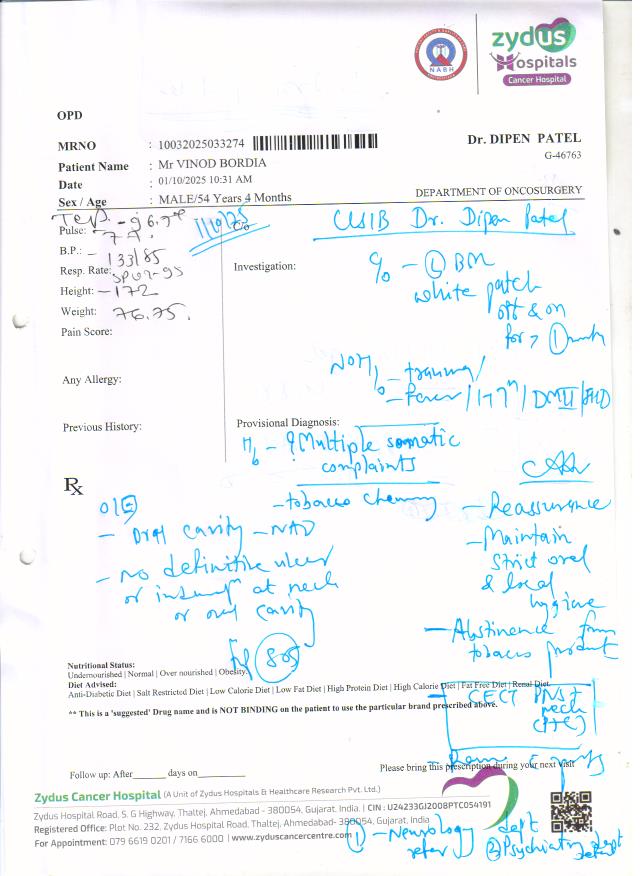 NABH
zydus
Hospitals
Cancer Hospital
OPD
MRNO : 10032025033274
Dr. DIPEN PATEL
G-46763
Patient Name : Mr VINOD BORDIA
Date : 01/10/2025 10:31 AM
Sex / Age : MALE/54 Years 4 Months
DEPARTMENT OF ONCOSURGERY
1/10/25
Dr. Dipen Patel
Pulse:
B.P.: - 133/85
Resp. Rate: SPO2-95
Height: - 172
Weight: 76.75.
Pain Score:
Any Allergy:
Previous History:
Investigation:
c/o - (L) BM
white patch
off & on
for > 1 month
- trauma/
- Fever / HTN / DMII / IHD
Provisional Diagnosis:
H/o - ? Multiple somatic
complaints
- tobacco chewing
Rx
O/E
- Oral cavity - NAD
- No definitive ulcer
or at neck
or oral cavity
F/U SOS
Adv
- Reassurance
- Maintain
strict oral
& local
hygiene
- Abstinence from
tobacco product
- CECT PNS +
neck
(P+C)
Nutritional Status:
Undernourished | Normal | Over nourished | Obesity.
Diet Advised:
Anti-Diabetic Diet | Salt Restricted Diet | Low Calorie Diet | Low Fat Diet | High Protein Diet | High Calorie Diet | Fat Free Diet | Renal Diet.
** This is a 'suggested' Drug name and is NOT BINDING on the patient to use the particular brand prescribed above.
Please bring this prescription during your next visit
Follow up: After______ days on________
Zydus Cancer Hospital (A Unit of Zydus Hospitals & Healthcare Research Pvt. Ltd.)
Zydus Hospitals Road, S. G Highway, Thaltej, Ahmedabad - 380054, Gujarat. India. | CIN : U24233GJ2008PTC054191
Registered Office: Plot No. 232, Zydus Hospital Road, Thaltej, Ahmedabad- 380054, Gujarat, India
For Appointment: 079 6619 0201 / 7166 6000 | www.zyduscancercentre.com
① - Neurology dept
refer
② Psychiatry dept
refer